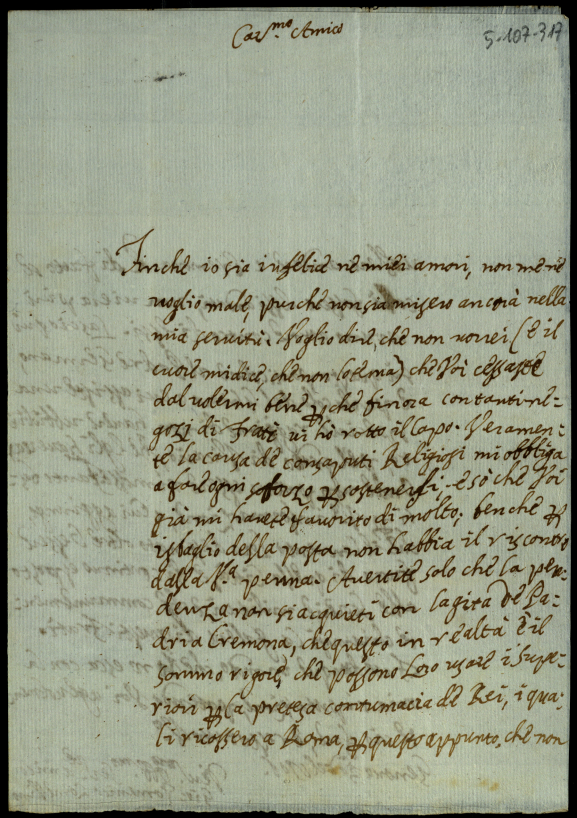 Car.mo Amico
5-107-317
Finche io sia infelice ne miei amori, non me ne
voglio male, purche non sia misero ancora nella
mia servitù. Voglio dire, che non vorrei (e il
cuore mi dice, che non lo tema) che Voi cessaste
dal volermi bene, p che finora con tanti ne-
gozi di Frati vi hò rotto il capo. Veramen-
te la causa de consaputi Religiosi mi obbliga
a fare ogni sforzo p sostenersi, e sò che Voi
già mi havete favorito di molto, benche p
isbaglio della posta non habbia il riscontro
dalla V.a penna. Avertite solo che la pen-
denza non si acquieti con la gita de Pa-
dri a Cremona, che questo in realtà è il
sommo rigore, che possono Loro usare i Supe-
riori p la pretesa contumacia de Rei, i qua-
li ricossero a Roma, p questo appunto, che non